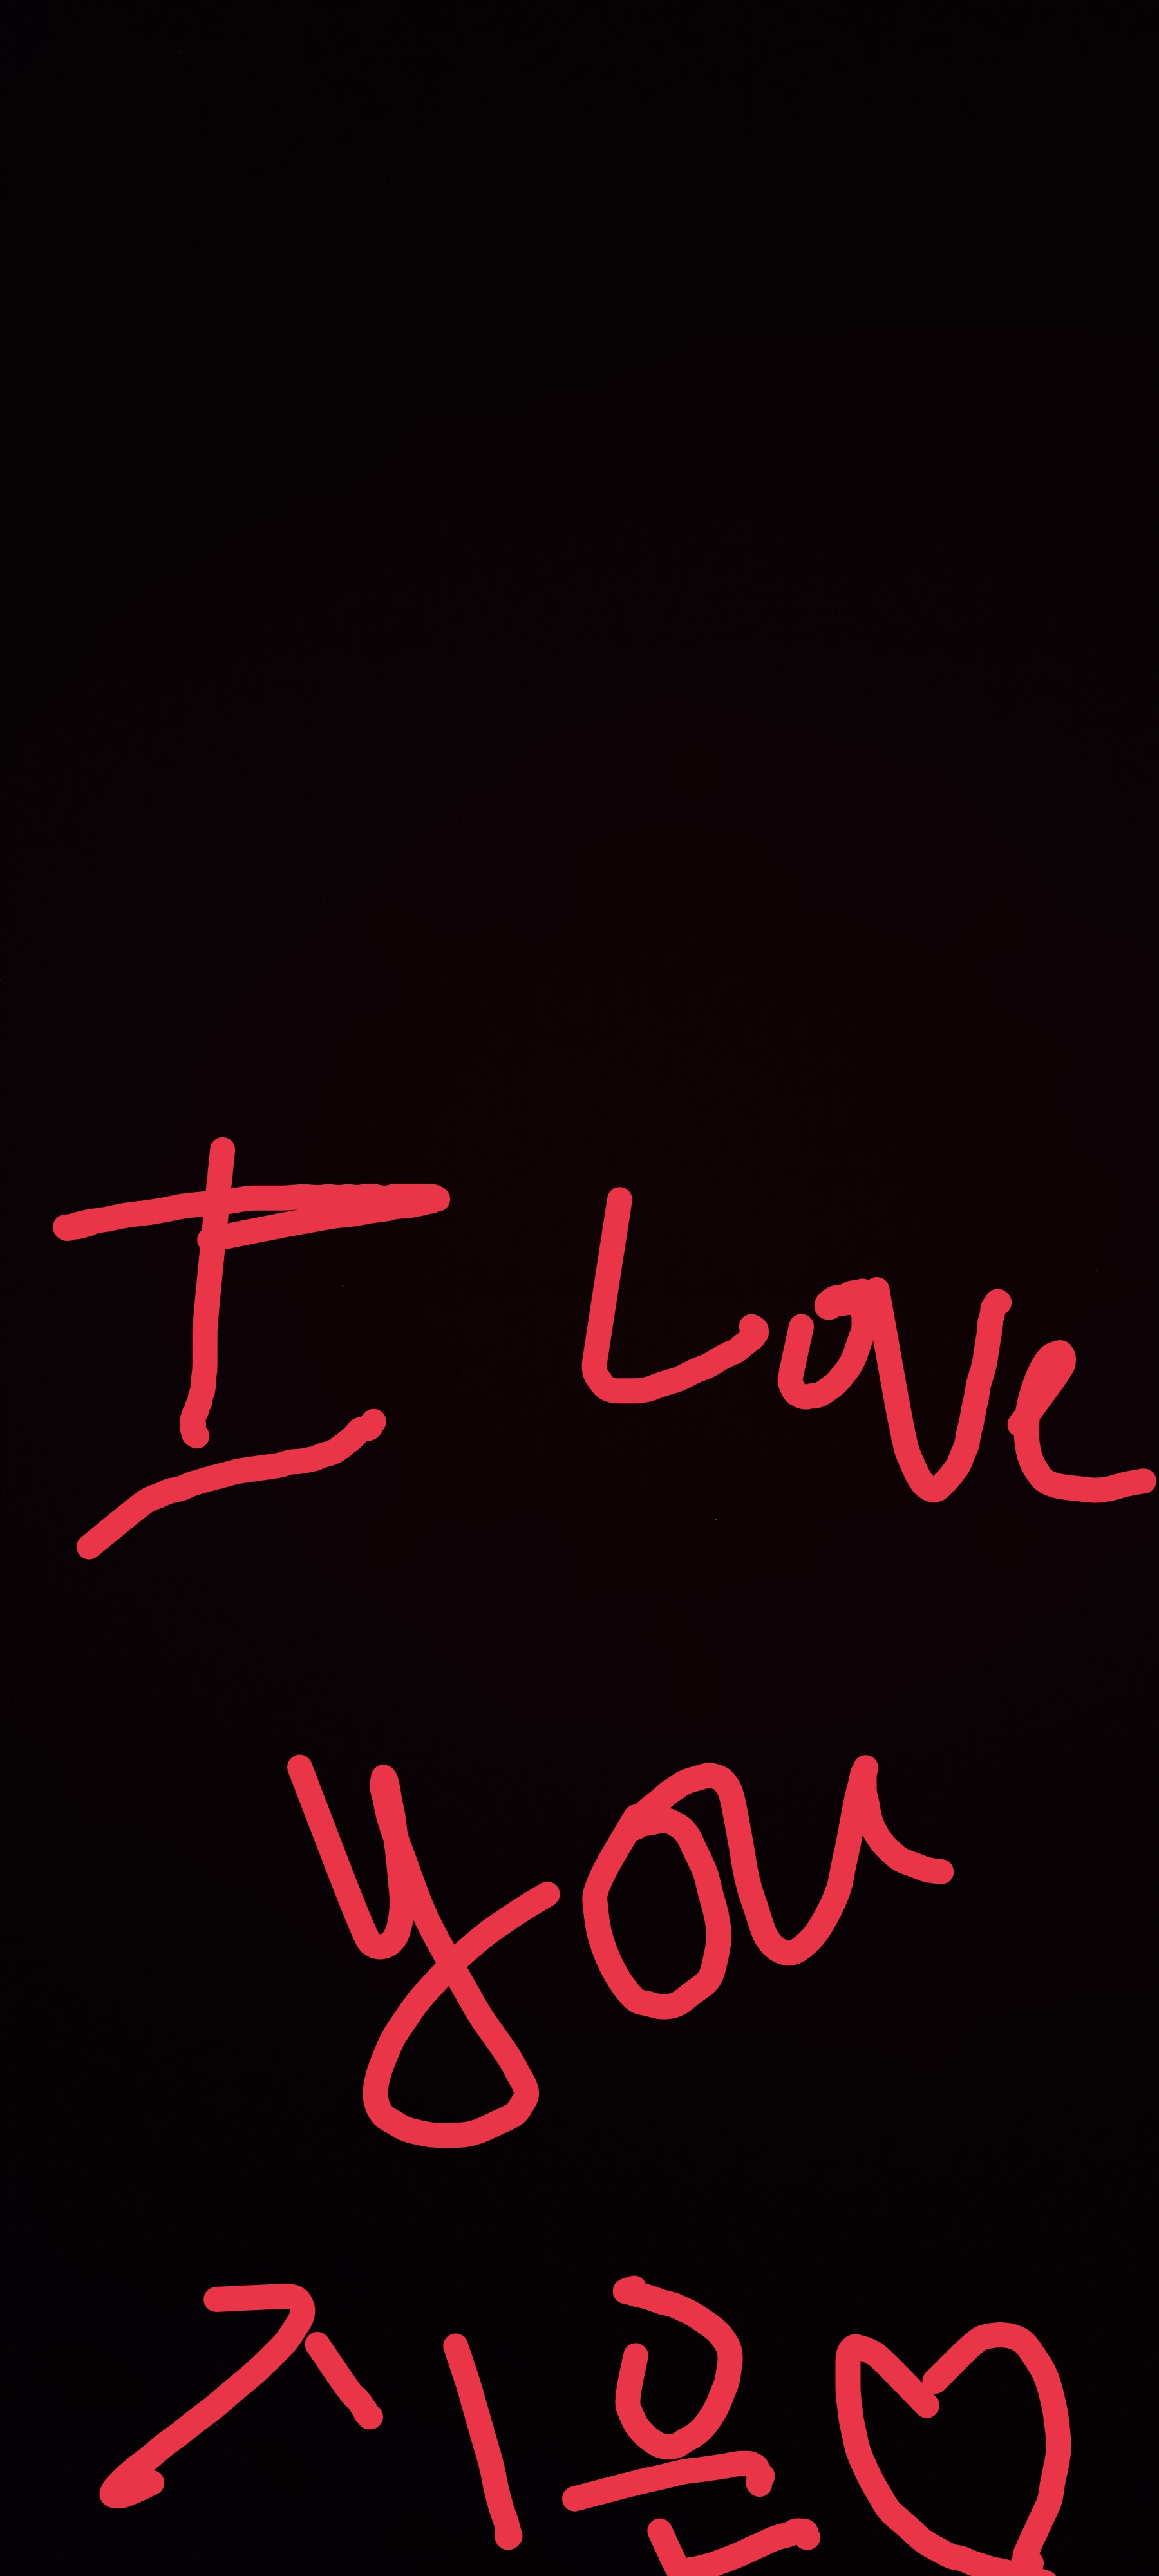 I Love
you
지은♡